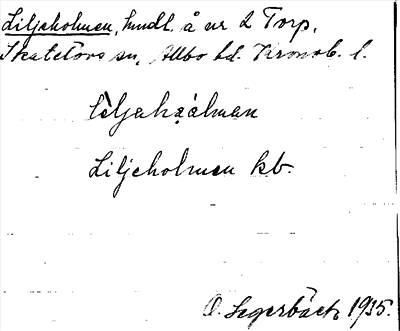 Liljeholmen, hmdl. å nr 2 Torp,
Skatelövs sn, Allbo hd. Kronob. l.
Liljeholmen kb.
O. Lagerbäck 1935.